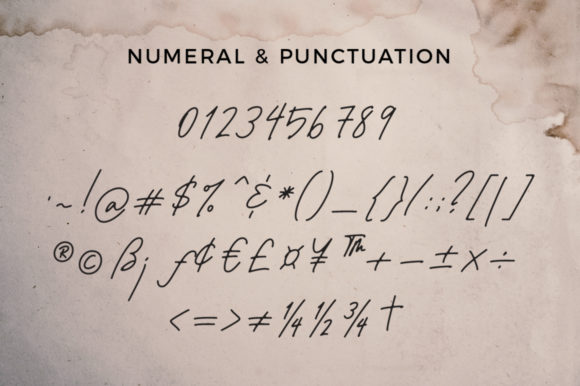 NUMERAL & PUNCTUATION
0123456789
`~!@#$%^&*()_{}/:;?[|]
®©ßj ƒ¢€£¤¥™+−±×÷
<=>≠¼½¾†